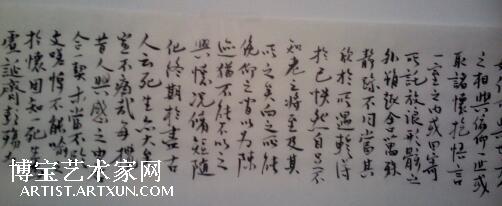 之相與俯仰一世或
取諸懷抱悟言
一室之內或因寄
所託放浪形骸之
外雖趣舍萬殊
靜躁不同當其
欣於所遇輒得
於己怏然自足不
知老之將至及其
之矣向之所欣
俛仰之間以為陳
迹猶不能不以之
興懷況脩短隨
化終期於盡古
人云死生亦大矣
豈不痛哉每攬
昔人興感之由
合一契未嘗不
文嗟悼不能喻
於懷固知一死生
虛誕齊彭殤
博宝艺术家网
ARTIST.ARTXUN.COM